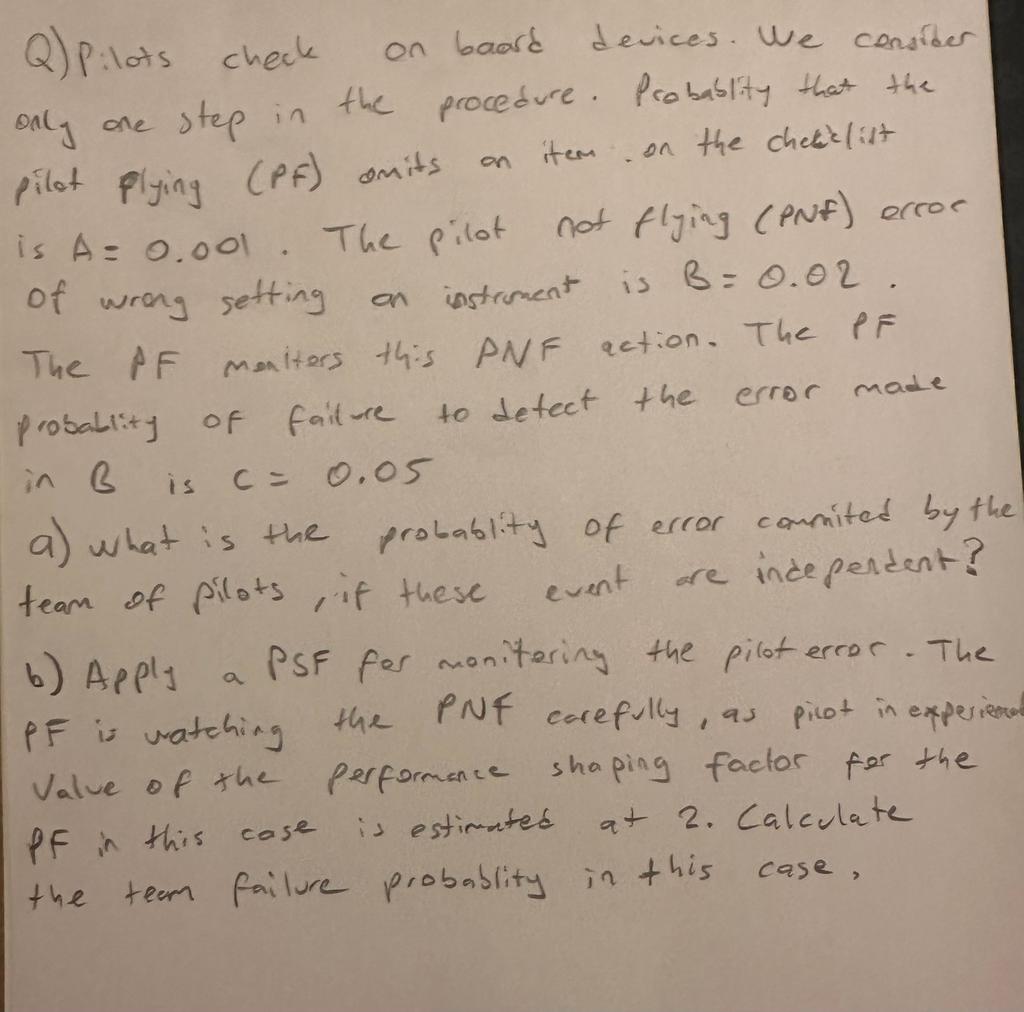 Q) Pilots check on baard devices. We consider
only one step in the procedure. Probablity that the
pilot flying (PF) omits an item on the checklist
is A = 0.001. The pilot not flying (PNF) error
of wrong setting an instrument is B = 0.02.
The PF monitors this PNF action. The PF
probablity of failure to detect the error made
in B is C = 0.05
a) what is the probablity of error commited by the
team of pilots, if these event are independent?
b) Apply a PSF for monitoring the pilot error. The
PF is watching the PNF carefully, as pilot inexperienced
Value of the performance shaping factor for the
PF in this case is estimated at 2. Calculate
the team failure probablity in this case,